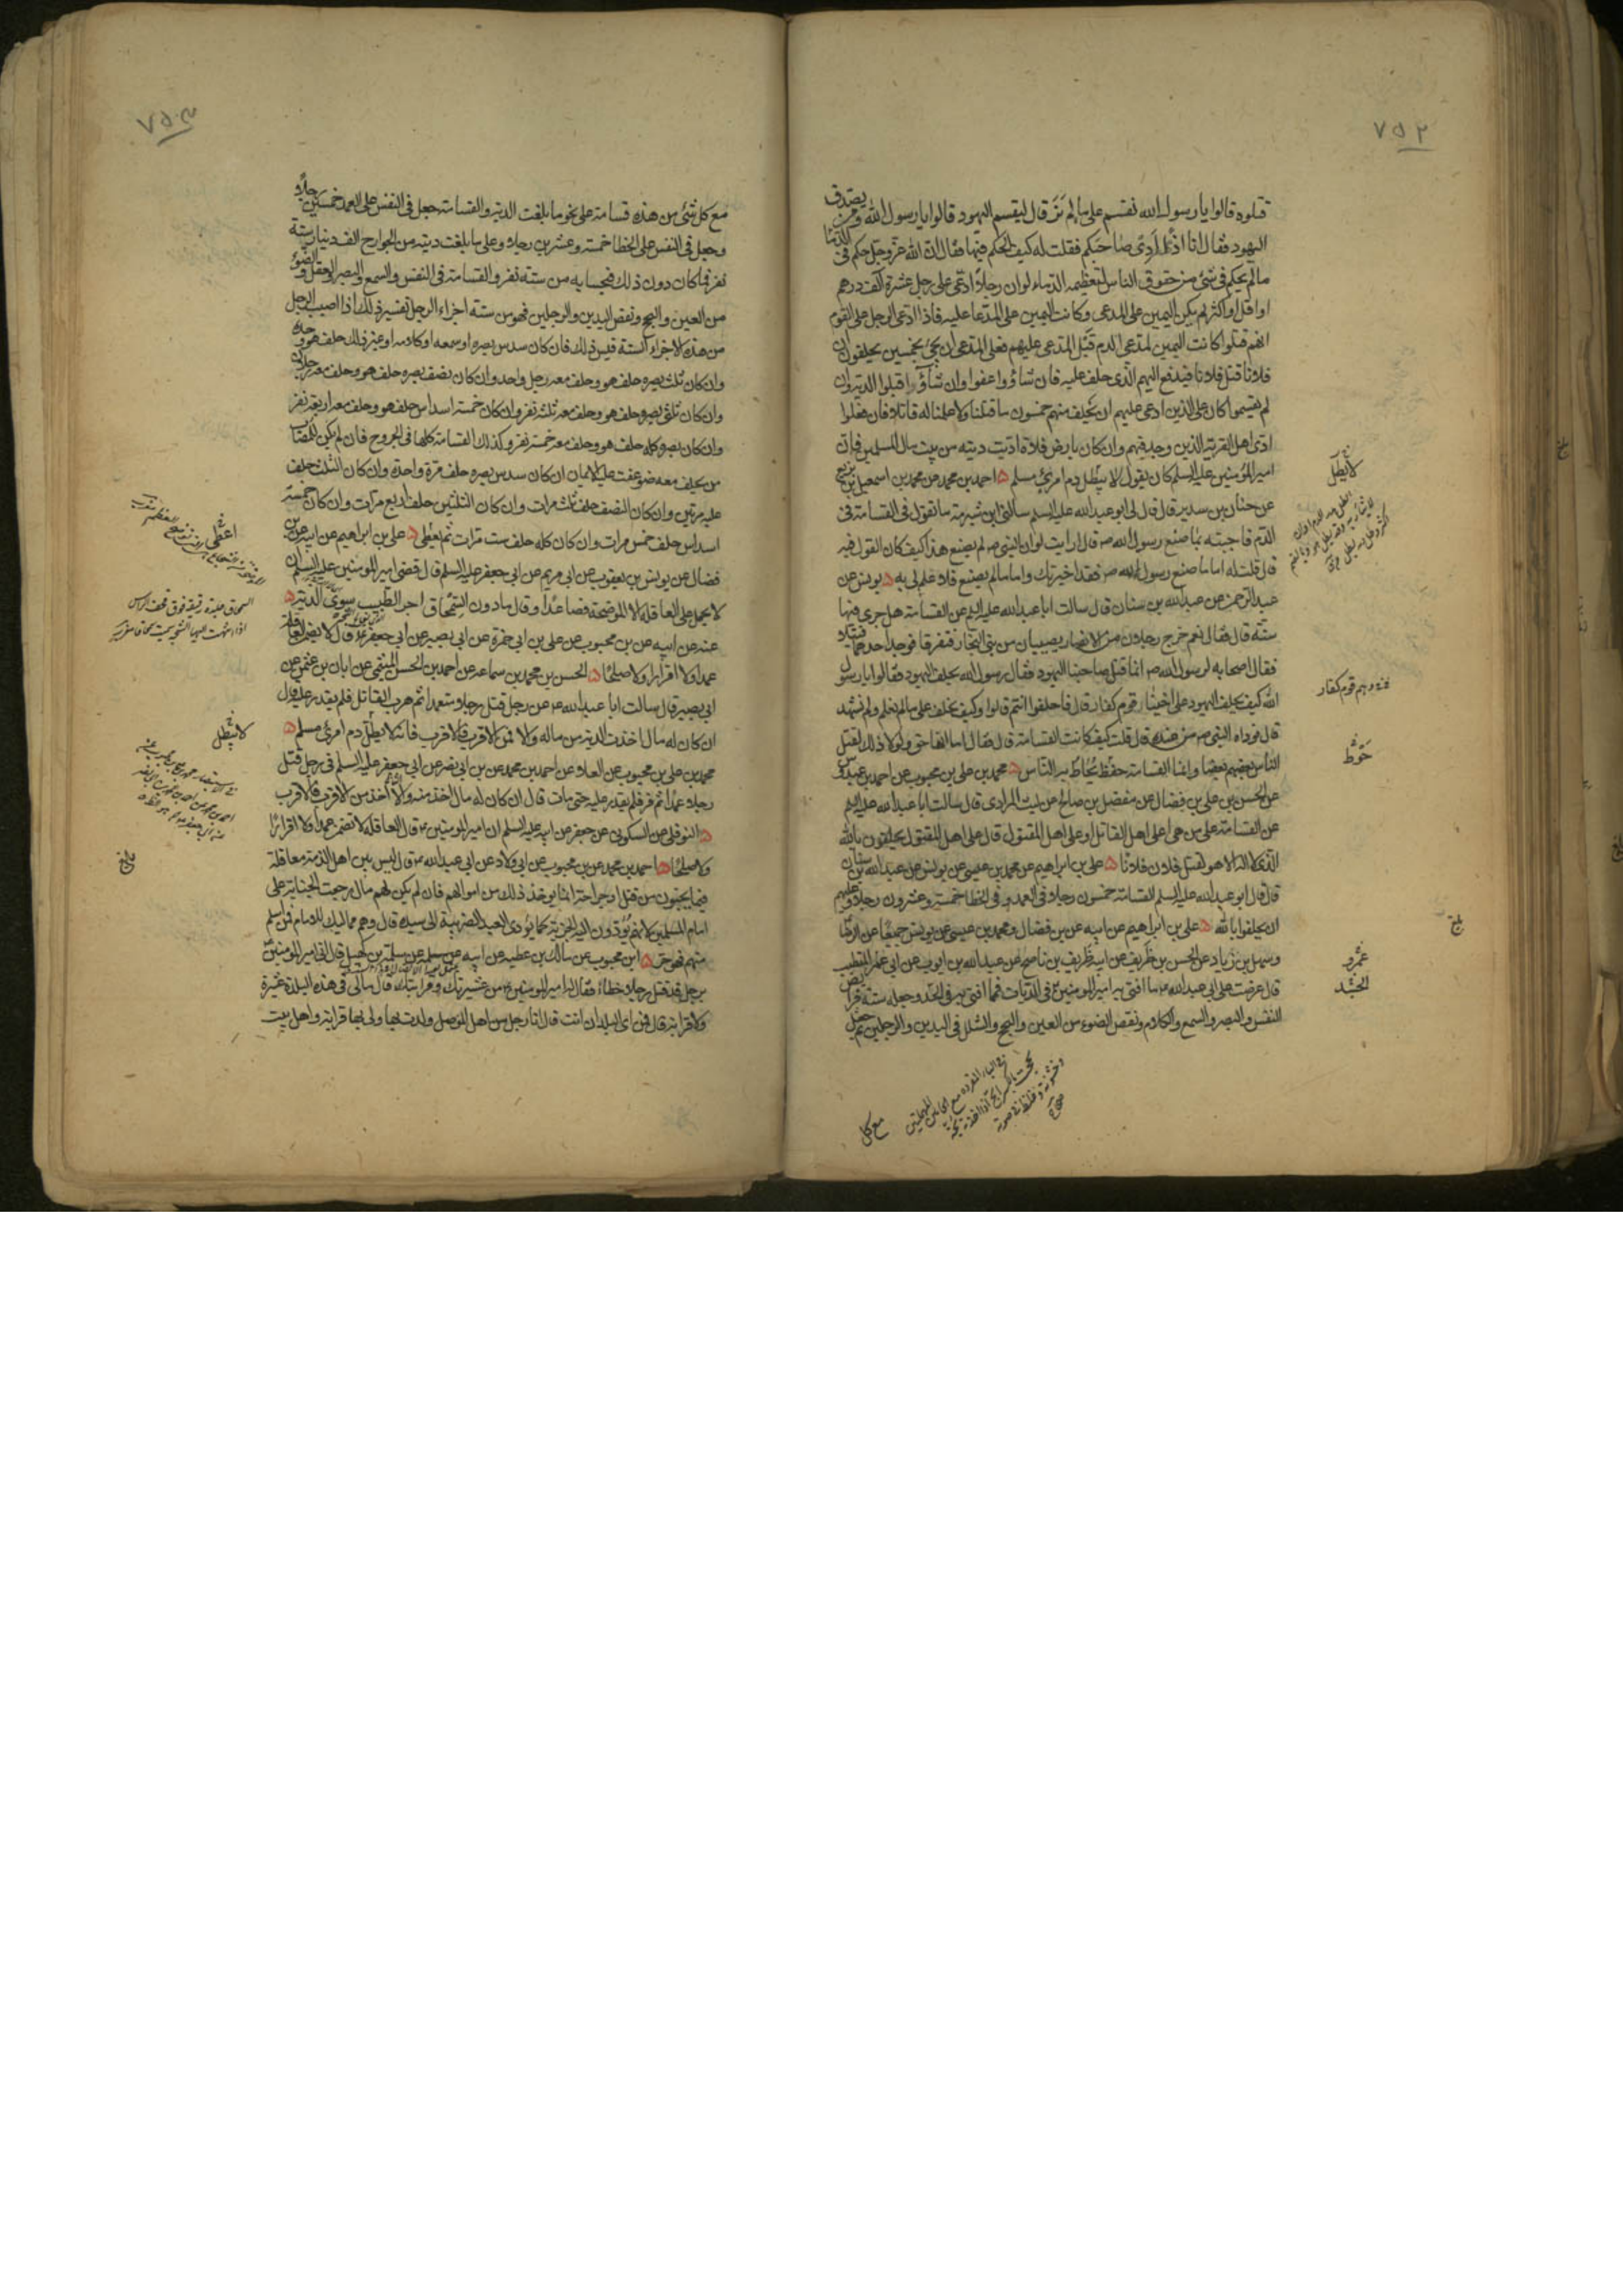 ٧٥٢
قتلوه قالوا يا رسول الله نقسم على ما لم نَرَ قال ليقسم اليهود قالوا يا رسول الله ومن يصدق
اليهود فقال انا اذًا اَدِى صاحبكم فقلت له كيف الحكم فيها فقال ان الله عزوجل حكم فى الدماء
ما لم يحكم فى شئ من حقوق الناس لتعظيمه الدماء لو ان رجلاً ادّعى على رجل عشرة آلف درهم
او اقل او اكثر لم يكن اليمين على المدعى وكانت اليمين على المدّعا عليه فاذا ادعى الرجل على القوم
انهم قتلوا كانت اليمين لمدعى الدم قبل المدعى عليهم فعلى المدعى ان يجئ بخمسين يحلفون ان
فلانا قتل فلانا فيدفع اليهم الذى حلف عليه فان شاؤوا عفوا وان شاؤوا قبلوا الدية وان
لم يقسموا كان على الذين ادعى عليهم ان يحلف منهم خمسون ما قتلنا ولا علمنا له قاتلا فان فعلوا
ادى اهل القرية الذين وجد فيهم وان كان بارض فلاة اديت ديته من بيت مال المسلمين فان
امير المؤمنين عليه السلم كان يقول لا يبطل دم امرئ مسلم ۵ احمد بن محمد عن محمد بن اسمعيل بن بزيع
عن حنان بن سدير قال قال لى ابو عبد الله عليه السلم سالنى ابن شبرمة ما تقول فى القسامة فى
الدّم فاجبته بما صنع رسول الله ص قال ارايت لو ان النبى ص لم يصنع هذا كيف كان القول فيه
قال قلت له اما ما صنع رسول الله ص فقد اخبرتك واما ما لم يصنع فلا علم لى به ۵ يونس عن
عبد الرحمن عن عبد الله بن سنان قال سالت ابا عبد الله عليه السلم عن القسامة هل جرى فيها
سنّة قال فقال نعم خرج رجلان من الانصار يصيبان من بنى النجار فتفرقا فوجد احدهما قتيلا
فقال اصحابه لرسول الله ص انما قتل صاحبنا اليهود فقال رسول الله يحلف اليهود فقالوا يا رسول
الله كيف يحلف اليهود على اخينا وهم قوم كفار قال فاحلفوا انتم قالوا وكيف نحلف على ما لم نعلم ولم نشهد
قال فوداه النبى ص من عنده قال قلت كيف كانت القسامة قال فقال اما انها حق ولولا ذلك لقتل
الناس بعضهم بعضا وانما القسامة حفظ يُحَاط به النّاس ۵ محمد بن على بن محبوب عن احمد بن عبدوس
عن الحسن بن على بن فضال عن مفضل بن صالح عن ليث المرادى قال سالت ابا عبد الله عليه السلم
عن القسامة على من هى اعلى اهل القاتل او على اهل المقتول قال على اهل المقتول يحلفون بالله
الذى لا اله الا هو لقتل فلان فلانا ۵ على بن ابراهيم عن محمد بن عيسى عن يونس عن عبد الله بن سنان
قال قال ابو عبد الله عليه السلم القسامة خمسون رجلا فى العمد وفى الخطا خمسة وعشرون رجلا وعليهم
ان يحلفوا بالله ۵ على بن ابراهيم عن ابيه عن بن فضال ومحمد بن عيسى عن يونس جميعًا عن الرضا
وسهل بن زياد عن الحسن بن ظريف عن ابيه ظريف بن ناصح عن عبد الله بن ايوب عن ابى عمر المتطبب
قال عرضت على ابى عبد الله ع ما افتى به امير المومنين ع فى الديات فما افتى به فى الجسد وجعله ستة فرائض
النفس والبصر والسمع والكلام ونقص الضوء من العين والبحح والشلل فى اليدين والرجلين ثم جعل
لا يطلّ
حوّط
عمرو
الجسد
بلغ
مع كل
٧٥٣
مع كل شئ من هذه قسامة على نحو ما بلغت الدية والقسامة جعل فى النفس على العمد خمسين رجلاً
وجعل فى النفس على الخطا خمسة وعشرين رجلا وعلى ما بلغت ديته من الجوارح الف دينار ستة
نفر فما كان دون ذلك فبحسابه من ستة نفر والقسامة فى النفس والسمع والبصر والعقل والضوء
من العين والبحح ونقص اليدين والرجلين فهو من ستة اجزاء الرجل تفسير ذلك اذا اصيب الرجل
من هذه الاجزاء الستة قيس ذلك فان كان سدس بصره او سمعه او كلامه او غير ذلك حلف هو وحده
وان كان ثلث بصره حلف هو وحلف معه رجل واحد وان كان نصف بصره حلف هو وحلف معه رجلان
وان كان ثلثى بصره حلف هو وحلف معه ثلثة نفر وان كان خمسة اسداس حلف هو وحلف معه اربعة نفر
وان كان بصره كله حلف هو وحلف معه خمسة نفر وكذلك القسامة كلها فى الجروح فان لم يكن للمصاب
من يحلف معه ضوعفت عليه الايمان ان كان سدس بصره حلف مرة واحدة وان كان الثلث حلف
عليه مرتين وان كان النصف حلف ثلث مرات وان كان الثلثين حلف اربع مرات وان كان خمسة
اسداس حلف خمس مرات وان كان كله حلف ست مرات ثم يعطى ۵ على بن ابراهيم عن ابيه عن بن
فضال عن يونس بن يعقوب عن ابى مريم عن ابى جعفر عليه السلم قال قضى امير المومنين عليه السلم ان
لا يحمل على العاقلة الا الموضحة فصاعدًا وقال ما دون السمحاق اجر الطبيب سوى الدية ۵
عنه عن ابيه عن بن محبوب عن على بن ابى حمزة عن ابى بصير عن ابى جعفر ع قال لا تضمن العاقلة
عمدا ولا اقرارا ولا صلحًا ۵ الحسن بن محمد بن سماعه عن احمد بن الحسن الميثمى عن ابان بن عثمن عن
ابى بصير قال سالت ابا عبد الله ع عن رجل قتل رجلا متعمدا ثم هرب القاتل فلم يقدر عليه قال
ان كان له مال اخذت الدية من ماله والا فمن الاقرب فالاقرب فانه لا يطلّ دم امرئ مسلم ۵
محمد بن على بن محبوب عن العلاء عن احمد بن محمد عن بن ابى نصر عن ابى جعفر عليه السلم فى رجل قتل
رجلا عمدًا ثم فر فلم يقدر عليه حتى مات قال ان كان له مال اخذ منه والا اخذ من الاقرب فالاقرب
۵ النوفلى عن السكونى عن جعفر عن ابيه عليه السلم ان امير المومنين ع قال العاقلة لا تضمن عمدا ولا اقرارًا
ولا صلحًا ۵ احمد بن محمد عن بن محبوب عن ابى ولاد عن ابى عبد الله ع قال ليس بين اهل الذمة معاقلة
فيما يجنون من قتل او جراحة انما يوخذ ذلك من اموالهم فان لم يكن لهم مال رجعت الجناية على
امام المسلمين لانهم يؤدون اليه الجزية كما يؤدى العبد الضريبة الى سيده قال وهم مماليك للامام فمن اسلم
منهم فهو حر ۵ ابن محبوب عن مالك بن عطيه عن ابيه عن سلمه بن كهيل قال اتى امير المومنين
برجل قد قتل رجلا خطاء فقال له امير المومنين ع من عشيرتك وقرابتك قال مالى فى هذه البلدة عشيرة
ولا قرابة قال فمن اى البلدان انت قال انا رجل من اهل الموصل ولدت بها ولى بها قرابة واهل بيت
اعطى
لا يبطل
بلغ